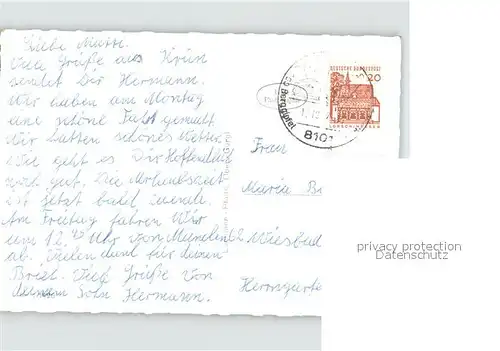 Liebe Mutti.
Viele Grüße aus Krün
sendet Dir Hermann.
Wir haben am Montag
eine schöne Fahrt gemacht
Wir hatten schönes Wetter.
Wie geht es Dir Hoffentlich
noch gut. Die Urlaubszeit
ist jetzt bald zuende.
Am Freitag fahren Wir
um 12 Uhr von München
ab. Vielen dank für deinen
Brief. Viele Grüße von
deinem Sohn Hermann.
DEUTSCHE BUNDESPOST
20
LORSCH/HESSEN
8101
Frau
Maria Br
Wiesbad
Herrngarte
privacy protection
Datenschutz